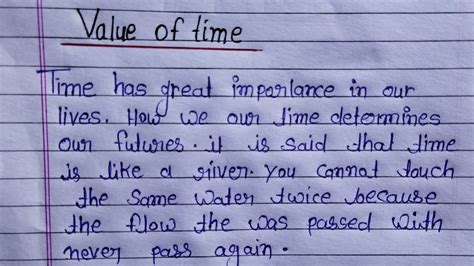 Value of time
Time has great imporlance in our
lives. How we our time determines
our futures. it is said that time
is like a river. you cannot touch
the same water twice because
the flow the was passed with
never pass again.